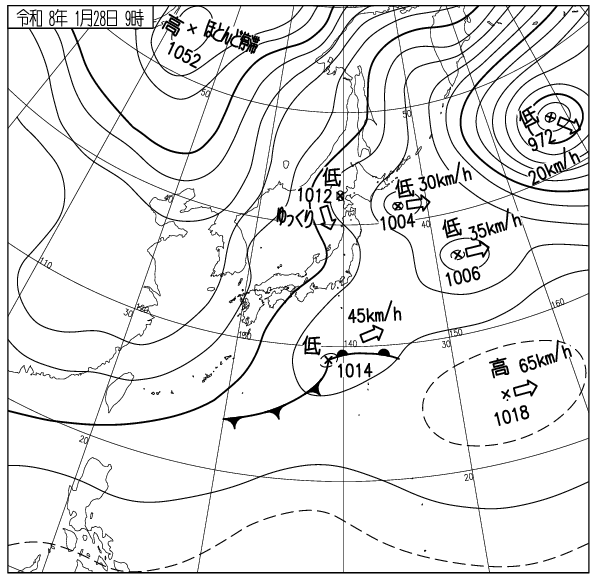 令和 8年 1月28日 9時
高 ほとんど停滞
1052
50
50
低
972
20km/h
低
1012
ゆっくり
低 30km/h
1004
40
40
低 35km/h
1006
110
30
130
45km/h
低
140
1014
30
150
160
高 65km/h
1018
20
20